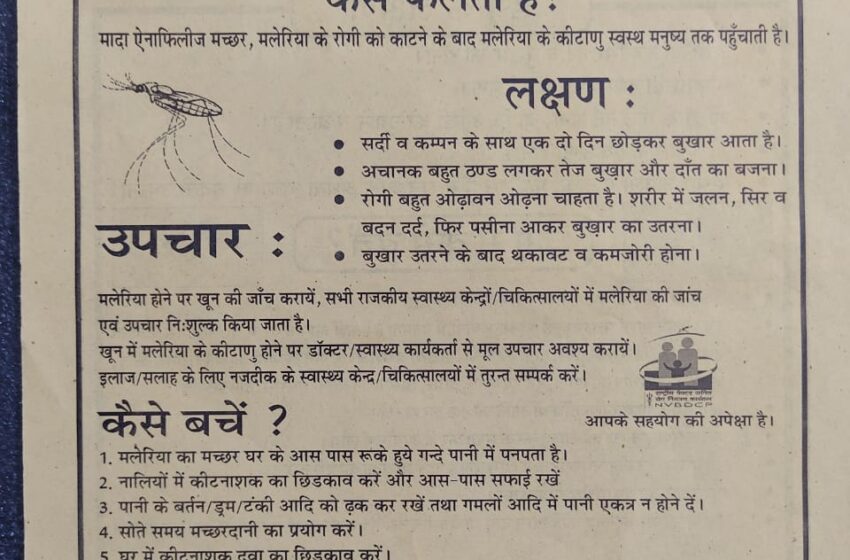 कैसे फैलता है?
मादा ऐनाफिलीज मच्छर, मलेरिया के रोगी को काटने के बाद मलेरिया के कीटाणु स्वस्थ मनुष्य तक पहुँचाती है।
लक्षण :
• सर्दी व कम्पन के साथ एक दो दिन छोड़कर बुखार आता है।
• अचानक बहुत ठण्ड लगकर तेज बुख़ार और दाँत का बजना।
• रोगी बहुत ओढ़ावन ओढ़ना चाहता है। शरीर में जलन, सिर व
बदन दर्द, फिर पसीना आकर बुख़ार का उतरना।
• बुखार उतरने के बाद थकावट व कमजोरी होना।
उपचार :
मलेरिया होने पर खून की जाँच करायें, सभी राजकीय स्वास्थ्य केन्द्रों/चिकित्सालयों में मलेरिया की जांच
एवं उपचार नि:शुल्क किया जाता है।
खून में मलेरिया के कीटाणु होने पर डॉक्टर/स्वास्थ्य कार्यकर्ता से मूल उपचार अवश्य करायें।
इलाज/सलाह के लिए नजदीक के स्वास्थ्य केन्द्र/चिकित्सालयों में तुरन्त सम्पर्क करें।
NVBDCP
आपके सहयोग की अपेक्षा है।
कैसे बचें ?
1. मलेरिया का मच्छर घर के आस पास रूके हुये गन्दे पानी में पनपता है।
2. नालियों में कीटनाशक का छिडकाव करें और आस-पास सफाई रखें
3. पानी के बर्तन/ड्रम/टंकी आदि को ढ़क कर रखें तथा गमलों आदि में पानी एकत्र न होने दें।
4. सोते समय मच्छरदानी का प्रयोग करें।
5. घर में कीटनाशक दवा का छिड़काव करें।